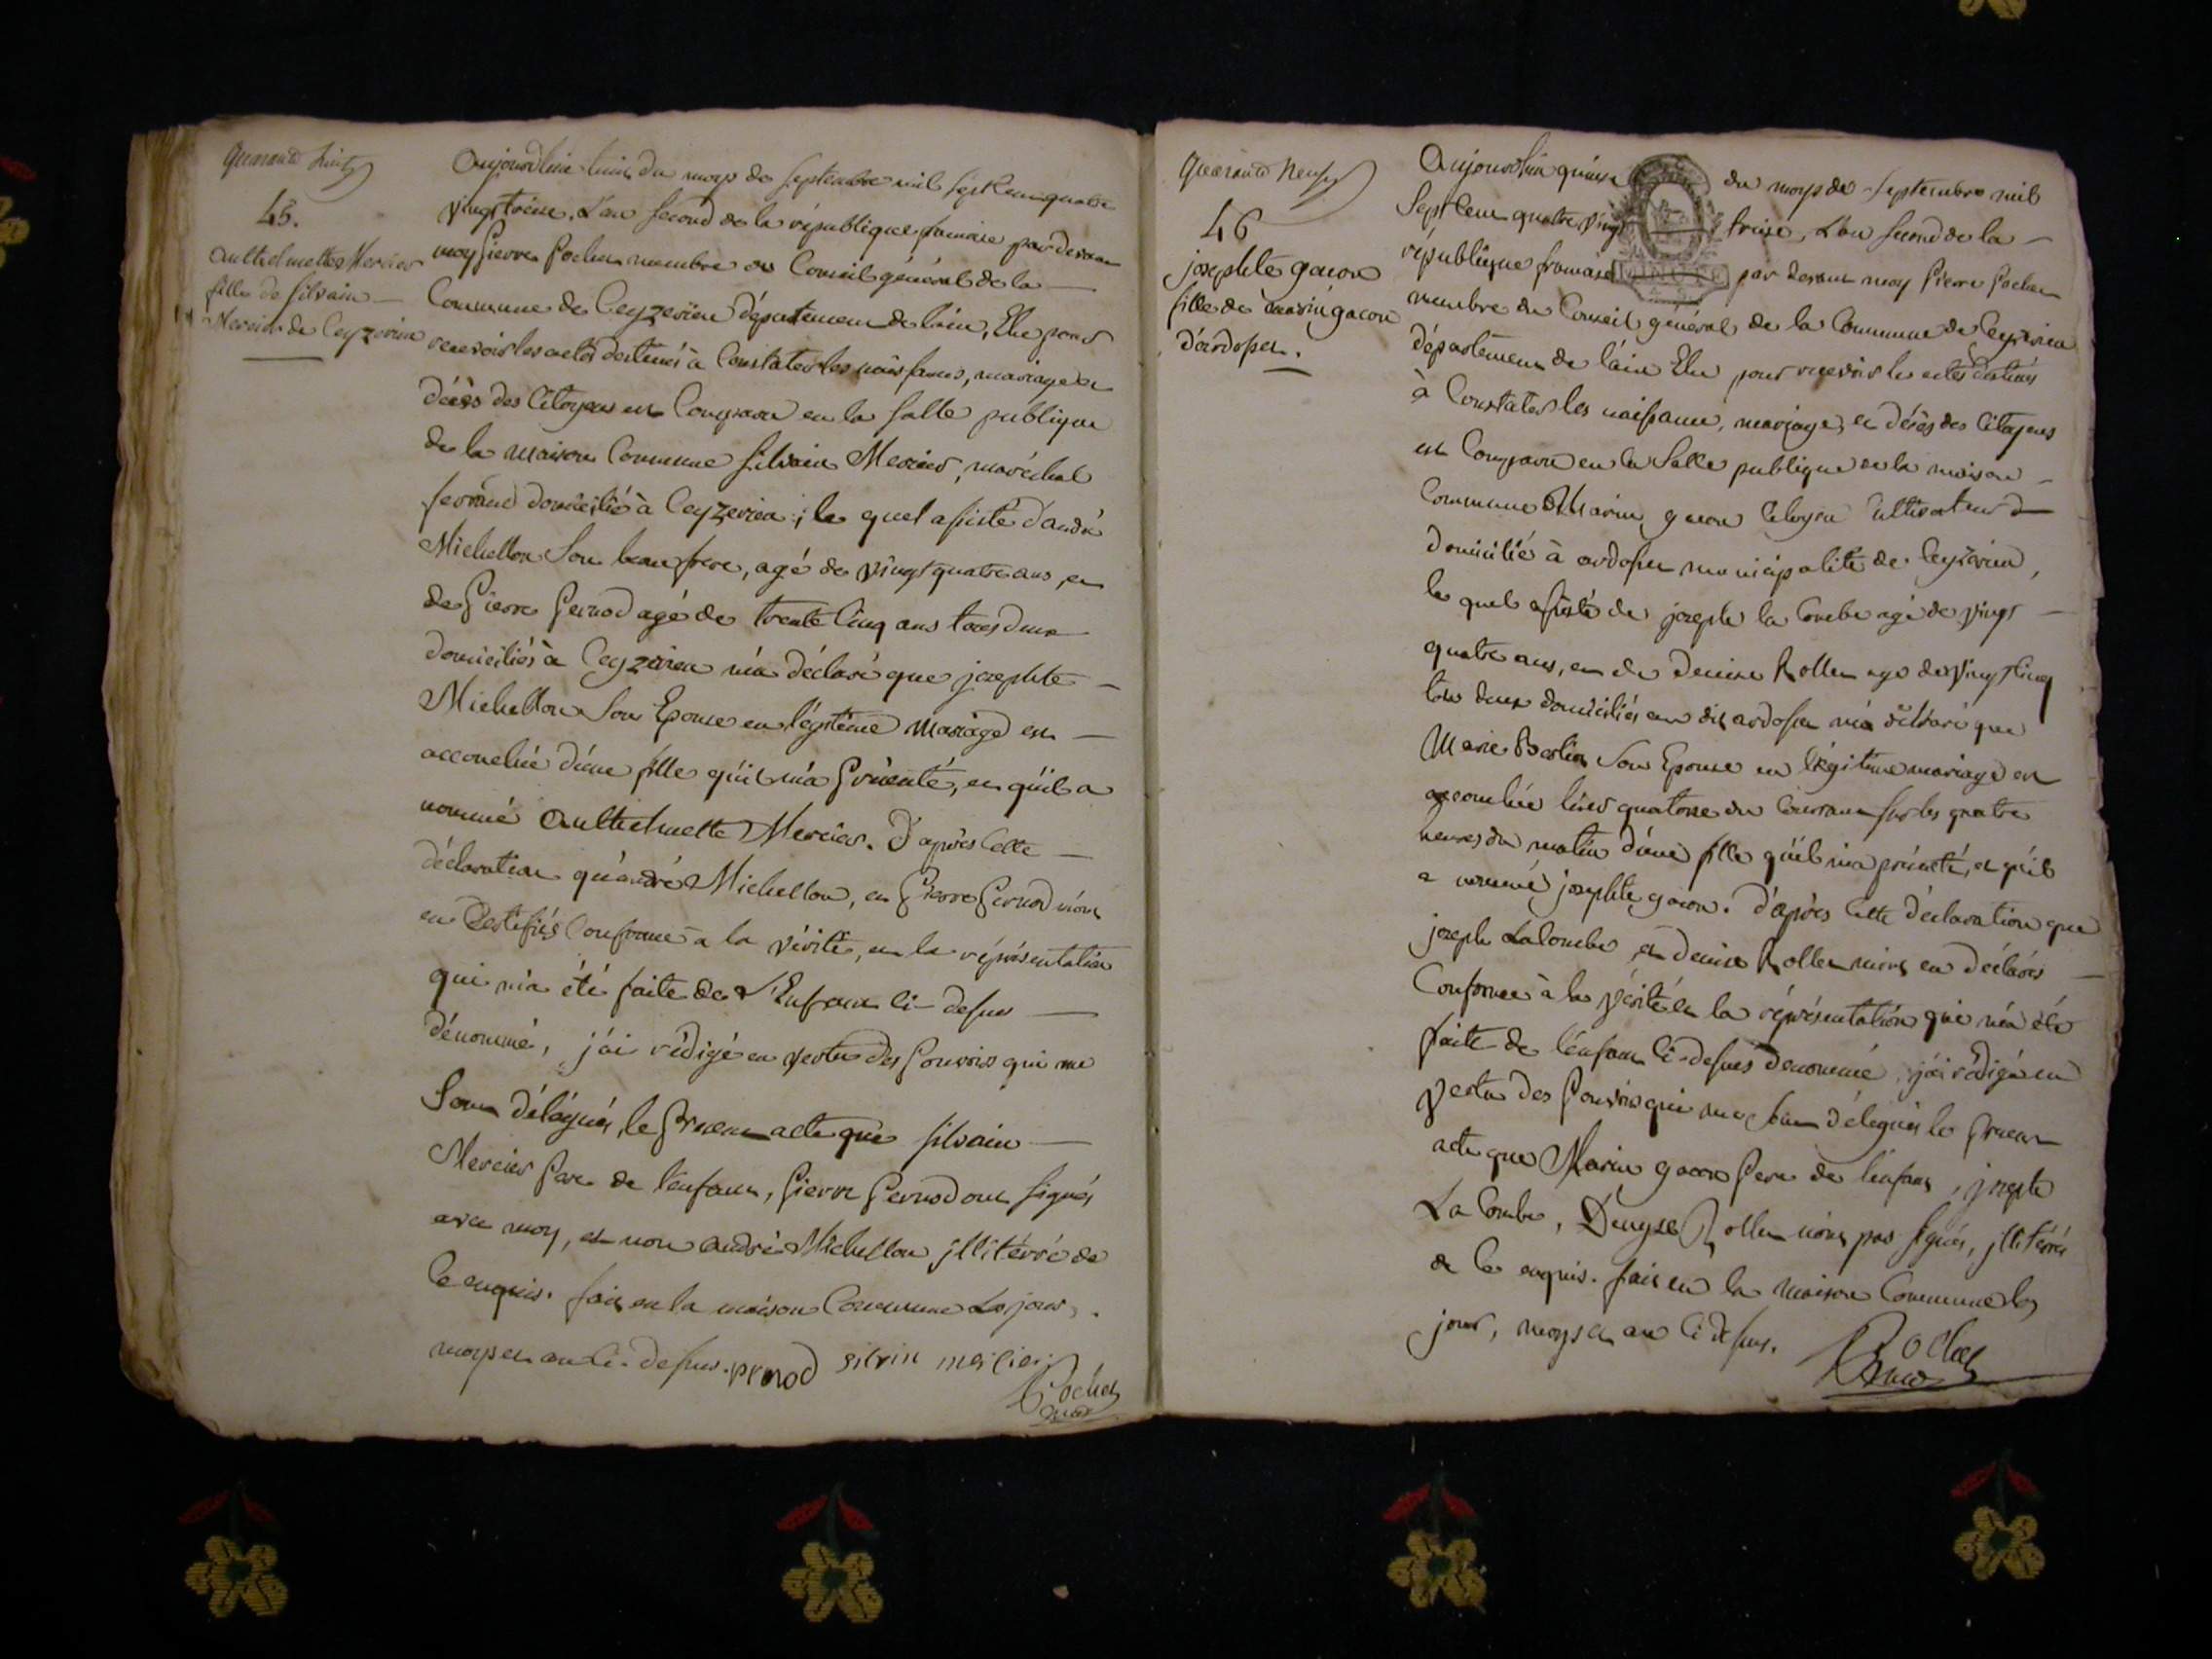 quarante huit
45.
Anthelmette Mercier
fille de silvain
Mercier de Ceyzerieu
Aujourdhui huit du moys de septembre mil sept cent quatre
vingt treise, L'an second de la république francaise par devant
moy Pierre Pochet membre du Conseil général de la
Commune de Ceyzerieu département de l'ain, Elu pour
recevoir les actes destinés à Constater les naissances, mariage et
décès des Citoyens est Comparu en la salle publique
de la maison Commune silvain Mercier, maréchal
ferrand domicilié à Ceyzerieu ; le quel assisté d'andré
Michellon son beau frere, agé de vingt quatre ans, et
de Pierre Pernod agé de trente cinq ans tous deux
domiciliés à Ceyzerieu m'a déclaré que josephte
Michellon son Epouse en légitime mariage est
accouchée d'une fille qu'il m'a Présenté, et qu'il a
nommé Anthelmette Mercier. D'après Cette
déclaration qu'andré Michellon, et Pierre Pernod m'ont
en Certifiés Conforme à la vérité, et la réprésentation
qui m'a été faite de L'Enfant Ci-dessus
dénommé, j'ai rédigé en vertu des Pouvoirs qui me
sont délégués, le Présent acte que silvain
Mercier Pere de l'enfant, Pierre Pernod ont signés
avec moy, et non andré Michellon jllitérré de
Ce enquis. fait en la maison Commune Les jour,
moys et an Ci-dessus. pernod silvin mercier
Pochet
quarante Neuf
46
josephte gacon
fille de marin gacon
d'ardosset.
Aujourdhui quinze du moys de septembre mil
sept Cent quatre vingt treise, L'an second de la
république francaise par devant moy Pierre Pochet
MINUTE
membre du Conseil général de la Commune de Ceyzerieu
département de l'ain Elu pour recevoir les actes destinés
à Constater les naissance, mariage, et décès des Citoyens
est Comparu en la salle publique de la maison
Commune Marin gacon Citoyen Cultivateur
domicilié à ardosset municipalité de Ceyzerieu,
le quel assisté de joseph la Combe agé de vingt
quatre ans, et de Denise Rollet agé de vingt cinq
tous deux domiciliés au dit ardosset m'a déclaré que
Marie Berlion son Epouse en légitime mariage est
accouchée hier quatorse du Courrant sur les quatre
heures du matin d'une fille qu'il m'a présenté, et qu'il
a nommé josephte gacon. D'après Cette déclaration que
joseph LaCombe et denise Rollet m'ont en déclarés
Conforme à la vérité et la réprésentation qui m'a été
faite de l'enfant Ci-dessus denommé j'ai rédigé en
vertu des Pouvoirs qui me sont délégués le Présent
acte que Marin gacon Pere de l'enfant, joseph
La Combe, Denyse Rollet n'ont pas signés, jllitérés
de Ce enquis. fait en la maison Commune les
jour, moys et an Ci dessus.
Pochet